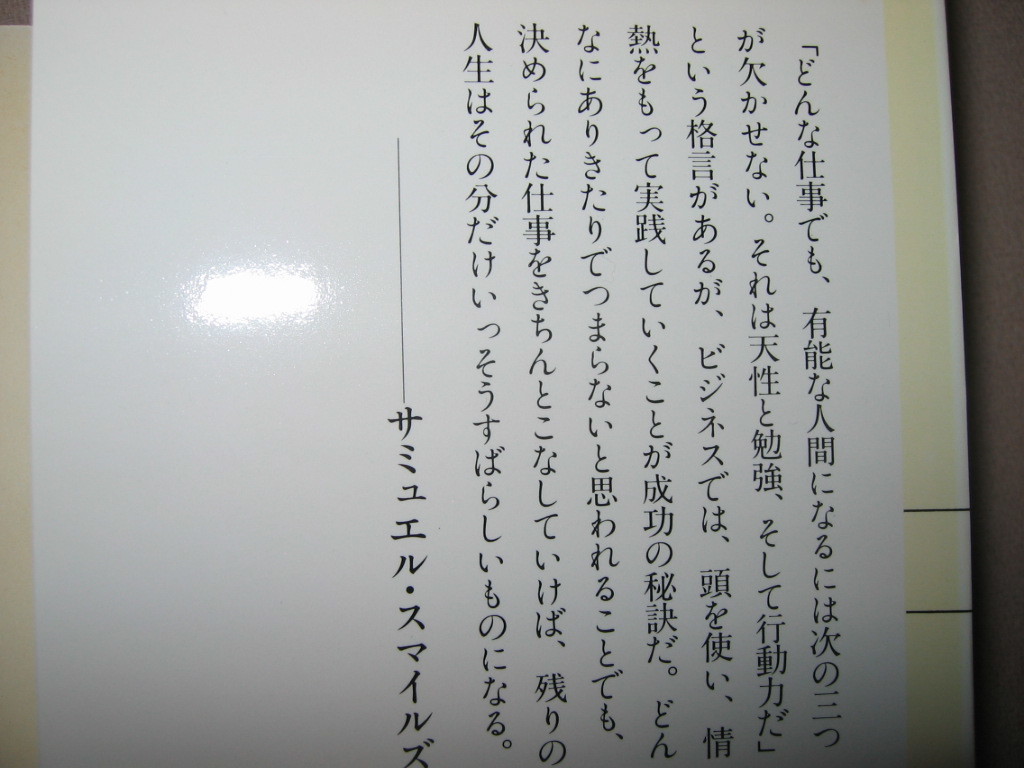 「どんな仕事でも、有能な人間になるには次の三つ
が欠かせない。それは天性と勉強、そして行動力だ」
という格言があるが、ビジネスでは、頭を使い、情
熱をもって実践していくことが成功の秘訣だ。どん
なにありきたりでつまらないと思われることでも、
決められた仕事をきちんとこなしていけば、残りの
人生はその分だけいっそうすばらしいものになる。
――サミュエル・スマイルズ